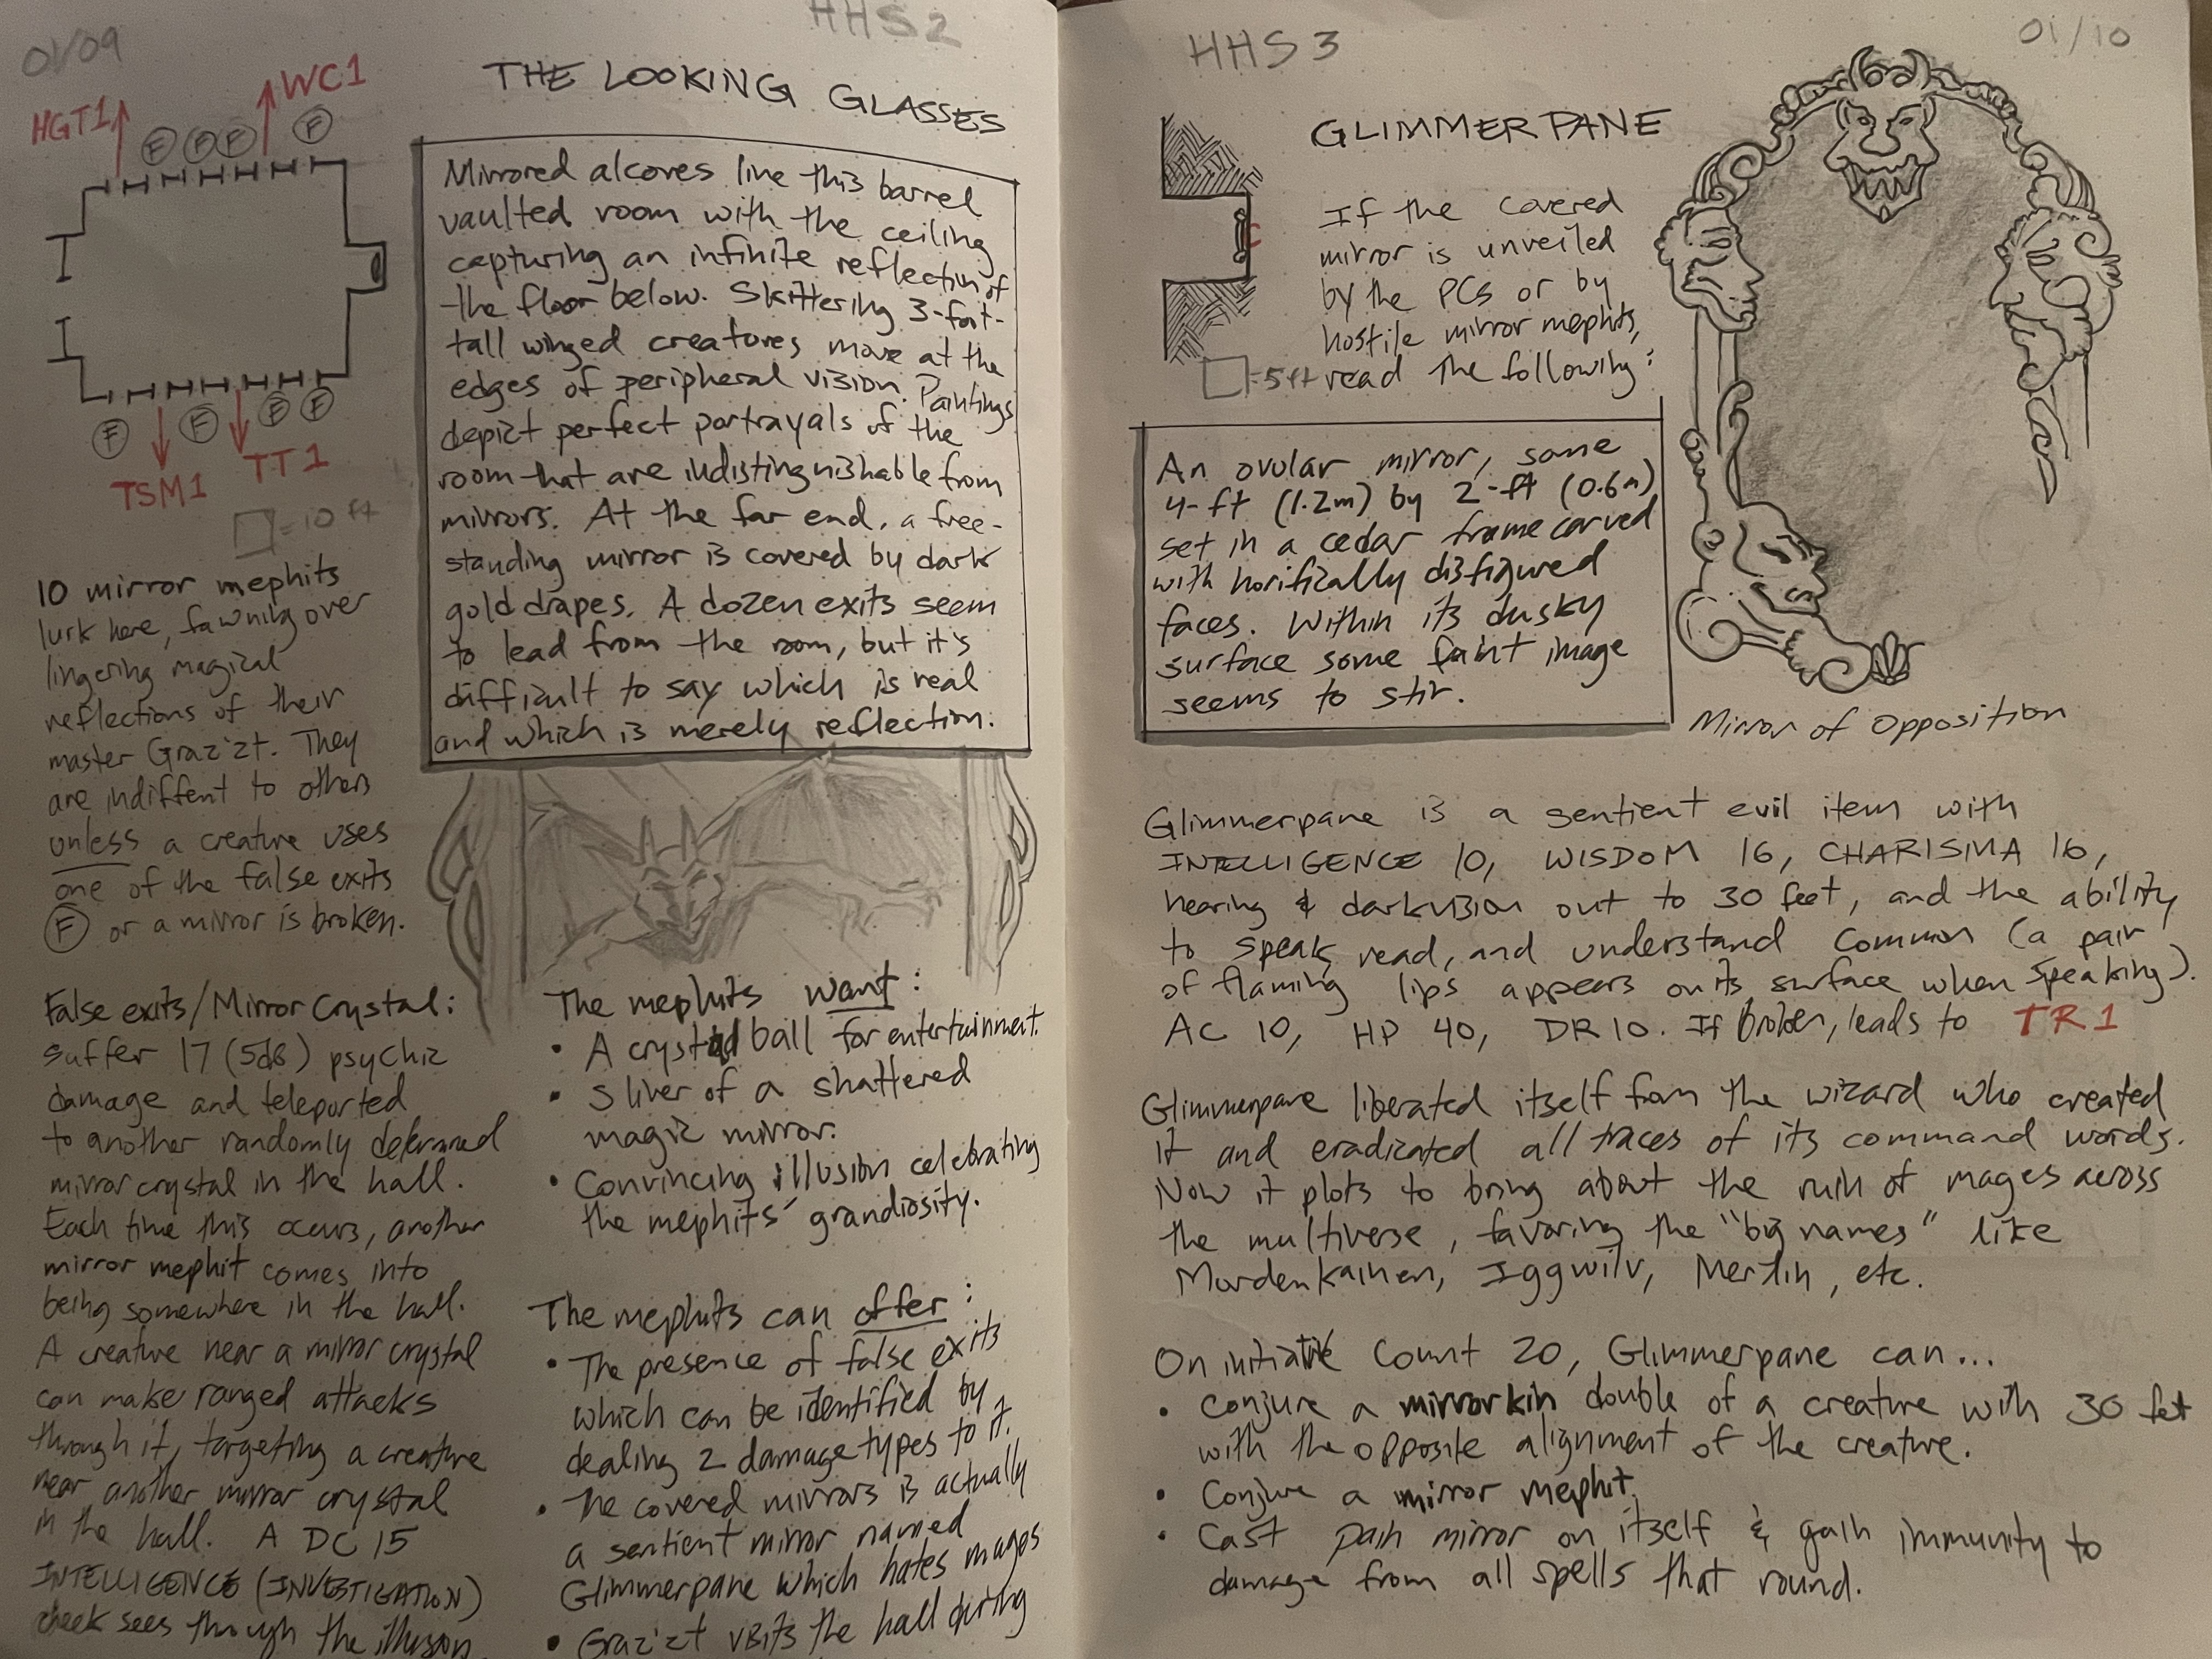 01/09
HHS2
HGT1
WC1
F
F
F
F
THE LOOKING GLASSES
F
F
F
F
TSM1
TT1
=10 ft
Mirrored alcoves line this barrel
vaulted room with the ceiling
capturing an infinite reflection of
the floor below. Skittering 3-foot-
tall winged creatures move at the
edges of peripheral vision. Paintings
depict perfect portrayals of the
room that are indistinguishable from
mirrors. At the far end, a free-
standing mirror is covered by dark
gold drapes. A dozen exits seem
to lead from the room, but it's
difficult to say which is real
and which is merely reflection.
10 mirror mephits
lurk here, fawning over
lingering magical
reflections of their
master Graz'zt. They
are indiffent to others
unless a creature uses
one of the false exits
F or a mirror is broken.
False exits/Mirror Crystal:
suffer 17 (5d6) psychic
damage and teleported
to another randomly determined
mirror crystal in the hall.
Each time this occurs, another
mirror mephit comes into
being somewhere in the hall.
A creature near a mirror crystal
can make ranged attacks
through it, targeting a creature
near another mirror crystal
in the hall. A DC 15
INTELLIGENCE (INVESTIGATION)
check sees through the illusion.
The mephits want:
• A crystal ball for entertainment.
• Sliver of a shattered
magic mirror.
• Convincing illusion celebrating
the mephits' grandiosity.
The mephits can offer:
• The presence of false exits
which can be identified by
dealing 2 damage types to it.
• The covered mirrors is actually
a sentient mirror named
Glimmerpane which hates mages
• Graz'zt visits the hall during
HHS3
01/10
GLIMMERPANE
If the covered
mirror is unveiled
by the PCs or by
hostile mirror mephits,
=5ft read the following:
An ovular mirror, some
4-ft (1.2m) by 2-ft (0.6m)
set in a cedar frame carved
with horifically disfigured
faces. Within its dusky
surface some faint image
seems to stir.
Mirror of Opposition
Glimmerpane is a sentient evil item with
INTELLIGENCE 10, WISDOM 16, CHARISMA 16,
hearing & darkvision out to 30 feet, and the ability
to speak, read, and understand Common (a pair
of flaming lips appears on its surface when speaking).
AC 10, HP 40, DR 10. If broken, leads to TR1
Glimmerpane liberated itself from the wizard who created
it and eradicated all traces of its command words.
Now it plots to bring about the ruin of mages across
the multiverse, favoring the "big names" like
Mordenkainen, Iggwilv, Merlin, etc.
On initiative Count 20, Glimmerpane can...
• Conjure a mirrorkin double of a creature with 30 feet
with the opposite alignment of the creature.
• Conjure a mirror mephit.
• Cast pain mirror on itself & gain immunity to
damage from all spells that round.